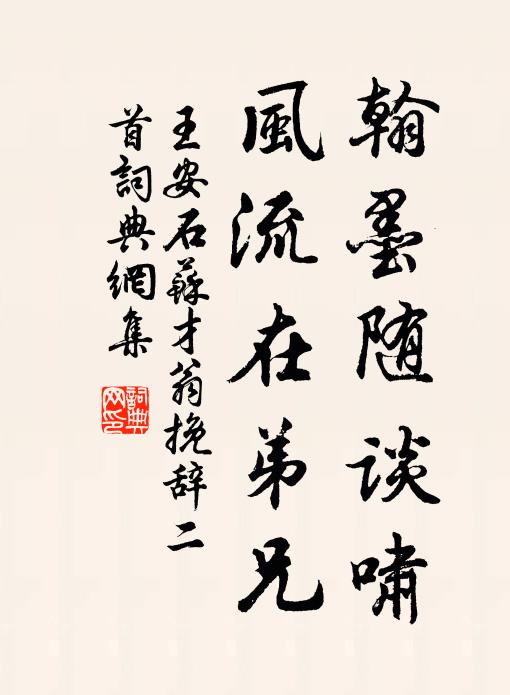 翰墨随談嘯
風流在弟兄
王安石蘇才翁挽辞二
首詞典網集
詞典
网印